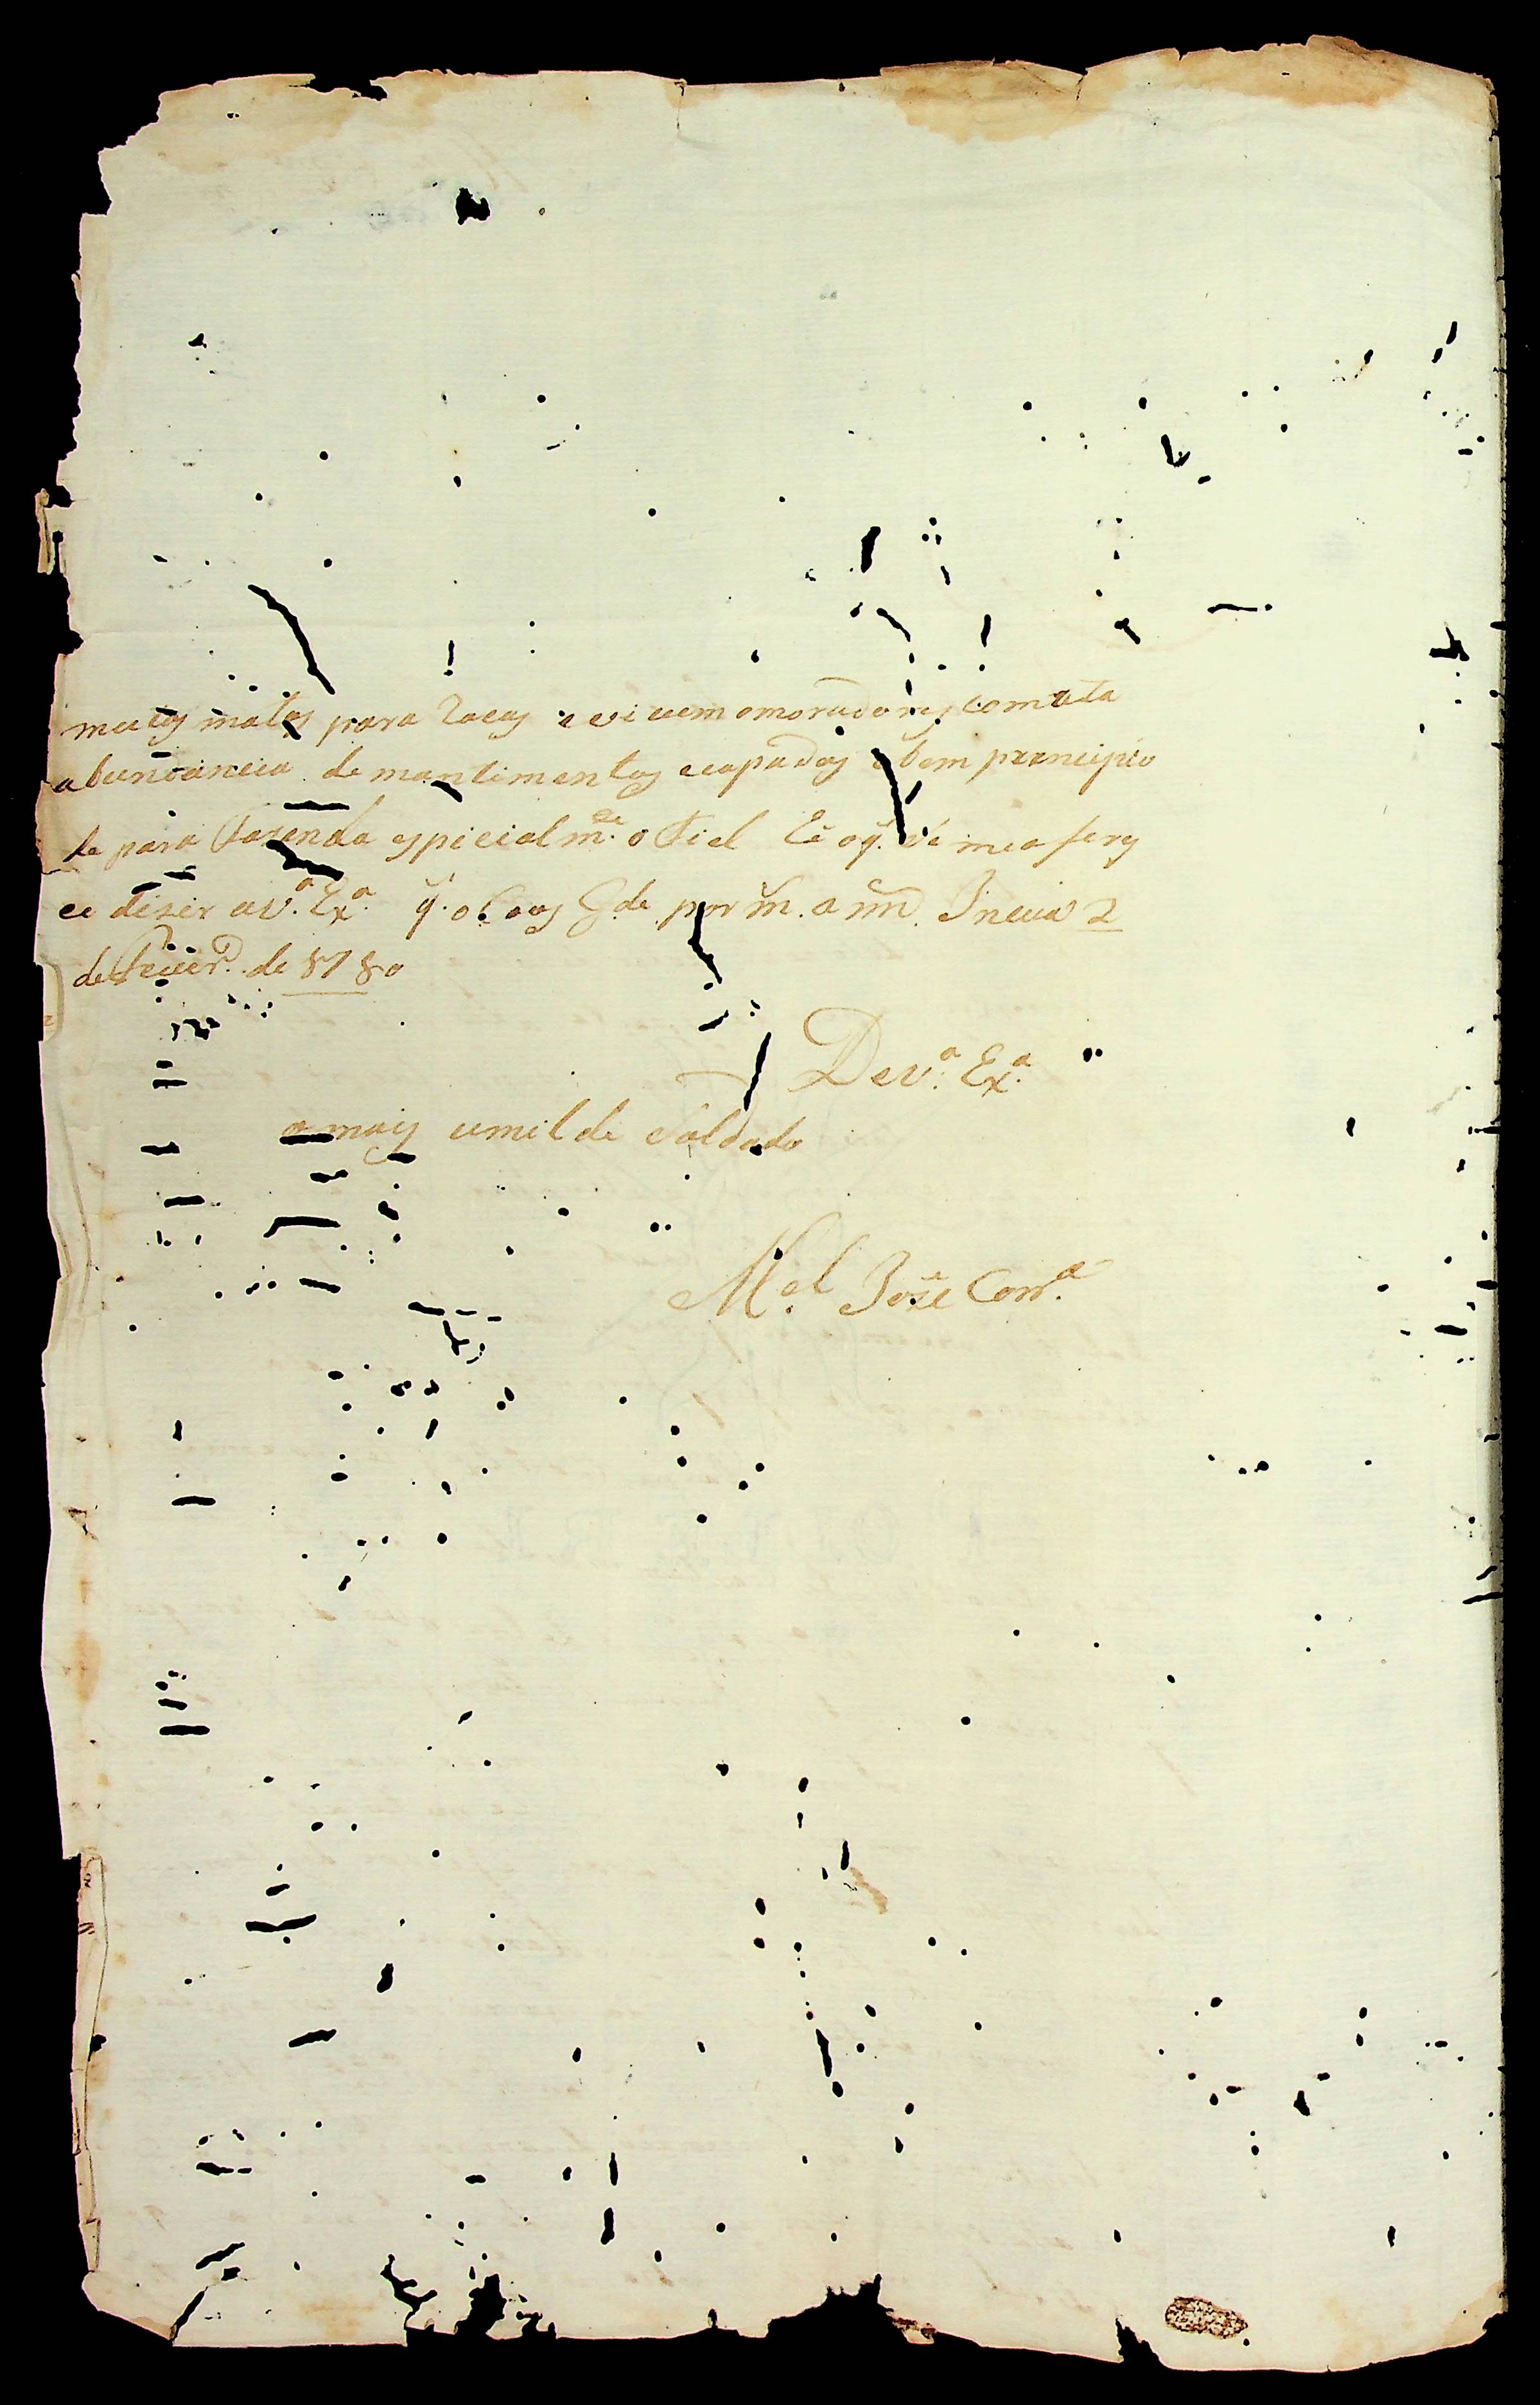 muitos matos para Rocas e vivem omoradores com m.ta
abundancia de mantimentos ecapados e bem prencipio
de para fazenda espicialm.te o Fiel he oq. se me o feres
ce dizer a V.a Ex.a q. o Ceos G.de por m. a nn. Incua 2
de Feuer.o de 1780
De V.a Ex.a
o mais umilde Soldado
M.el Joze Corr.a